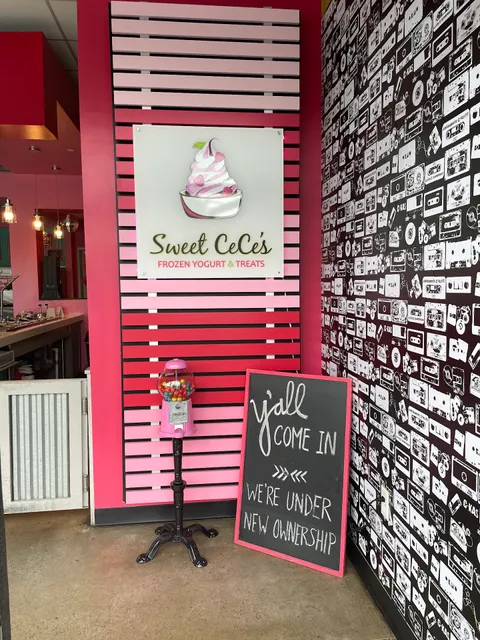 Sweet CeCe's
FROZEN YOGURT & TREATS
y'all
COME IN
WE'RE UNDER
NEW OWNERSHIP